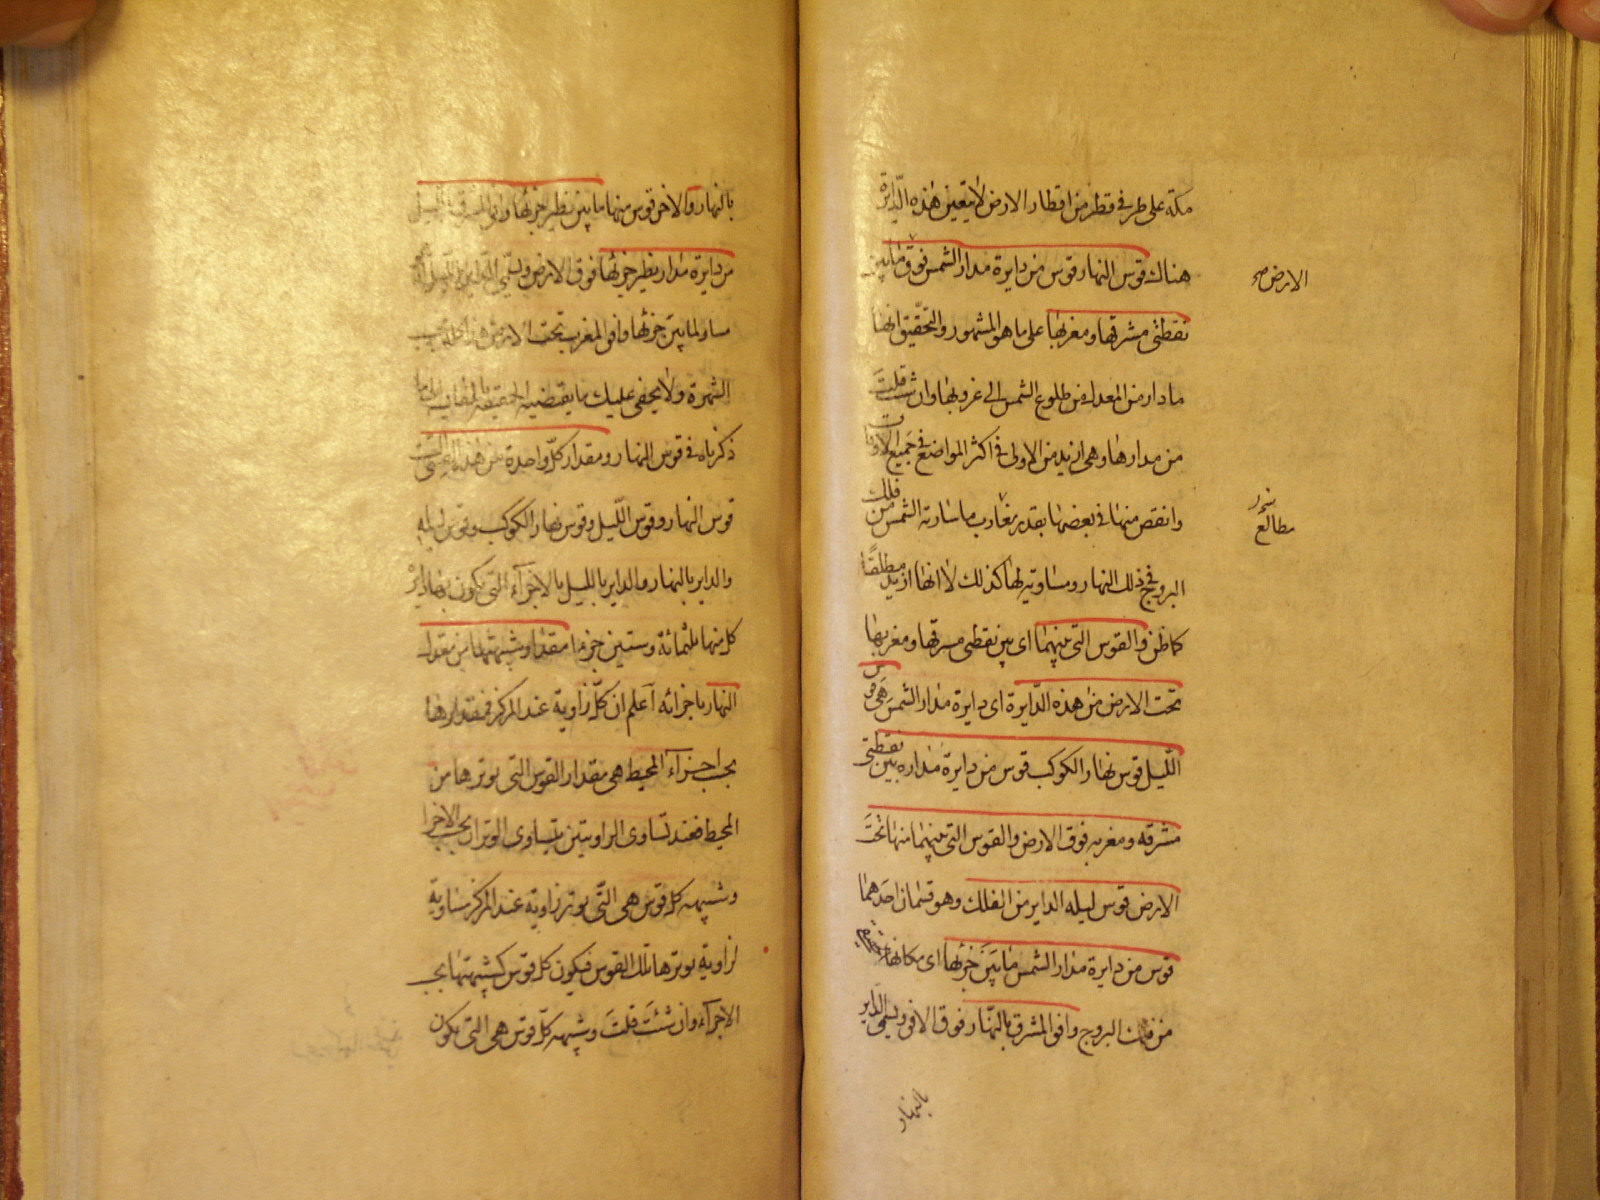 مكة على طرفى قطر من اقطار الارض لا يتعين هذه الدّايرة
هناك قوس النهار قوس من دايرة مدار الشمس فوق ما بين
الارض صح
نقطتى مشرقها ومغربها على ما هو المشهور والتحقيق انها
ما دار من المعدل من طلوع الشمس الى غروبها وان شئت قلت
من مدارها وهى ازيد من الاولى فى اكثر المواضع فى جميع الاوقات
وانقص منها فى بعضها بقدر مغارب ما سارته الشمس من فلك
مطالع
البروج فى ذلك النهار ومساوية لها كذلك لا انها ازيد مطلقًا
كما ظن والقوس التى بينهما اى بين نقطتى مشرقها ومغربها
تحت الارض من هذه الدّايرة اى دايرة مدار الشمس هى قوس
اللّيل قوس نهار الكوكب قوس من دايرة مداره بين نقطتى
مشرقه ومغربه فوق الارض والقوس التى بينهما منها تحت
الارض قوس ليله الداير من الفلك وهو قسمان احدهما
قوس من دايرة مدار الشمس ما بين جزئها اى مكانها
من فلك البروج وافق المشرق بالنّهار فوق الافق ويسمى الداير
بالنهار
بالنهار والاخر قوس منها ما بين نظير جزئها وافق المشرق بالليل
من دايرة مدار نظير جزئها فوق الارض ويسمى الداير بالليل
مساو لما بين جزئها وافق المغرب تحت الارض هذا
الشهرة ولا يخفى عليك ما يقتضيه الحقيقة بالمقايسة الى ما
ذكرناه فى قوس النهار ومقدار كلّ واحدة من هذه القسى
قوس النهار وقوس اللّيل وقوس نهار الكوكب وقوس ليله
والداير بالنهار والداير بالليل بالاجزاء التى يكون بها دايرة
كل منها ثلثمائة وستين جزءا مقدار شبيهتها من معدل
النهار باجزائه اعلم ان كلّ زاوية عند المركز فمقدارها
بحسب اجزاء المحيط هى مقدار القوس التى يوترها من
المحيط فعند تساوى الزاويتين يتساوى الوتران بحسب الاجزاء
وشبيهه كل قوس هى التّى يوتر زاوية عند المركز مساوية
لزاوية يوترها تلك القوس فيكون كل قوس كشبيهتها بحسب
الاجزاء وان شئت قلت وشبيهه كلّ قوس هى التى يكون